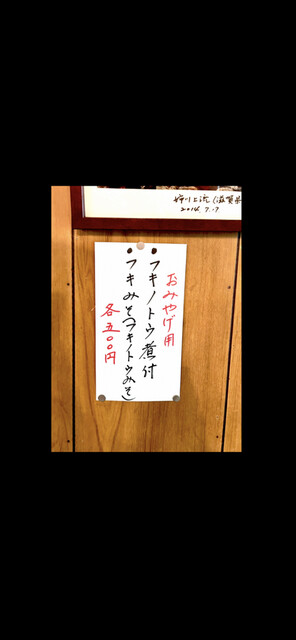 姉川上流(滋賀県
2014.7.17
おみやげ用
・フキノトウ煮付
・フキみそ(フキノトウみそ)
各五〇〇円